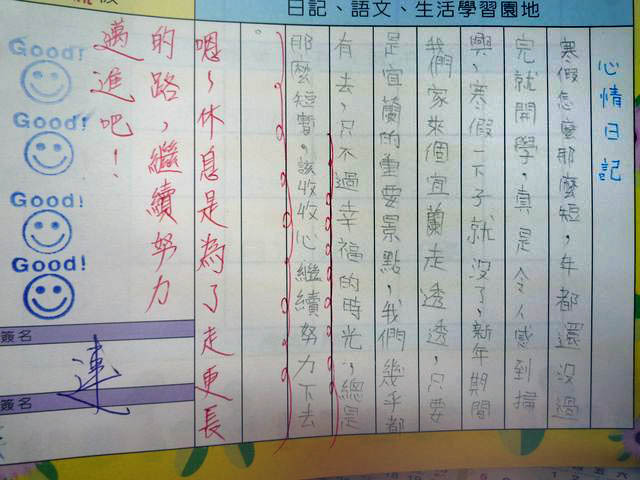 日記、語文、生活學習園地
心情日記
寒假怎麼那麼短，年都還沒過
完就開學，真是令人感到掃
興，寒假一下子就沒了，新年期間
我們家來個宜蘭走透透，只要
是宜蘭的重要景點，我們幾乎都
有去，只不過幸福的時光，總是
那麼短暫，該收收心繼續努力下去
。
嗯～休息是為了走更長
的路，繼續努力
邁進吧！
Good!
Good!
Good!
Good!
簽名
連
簽名